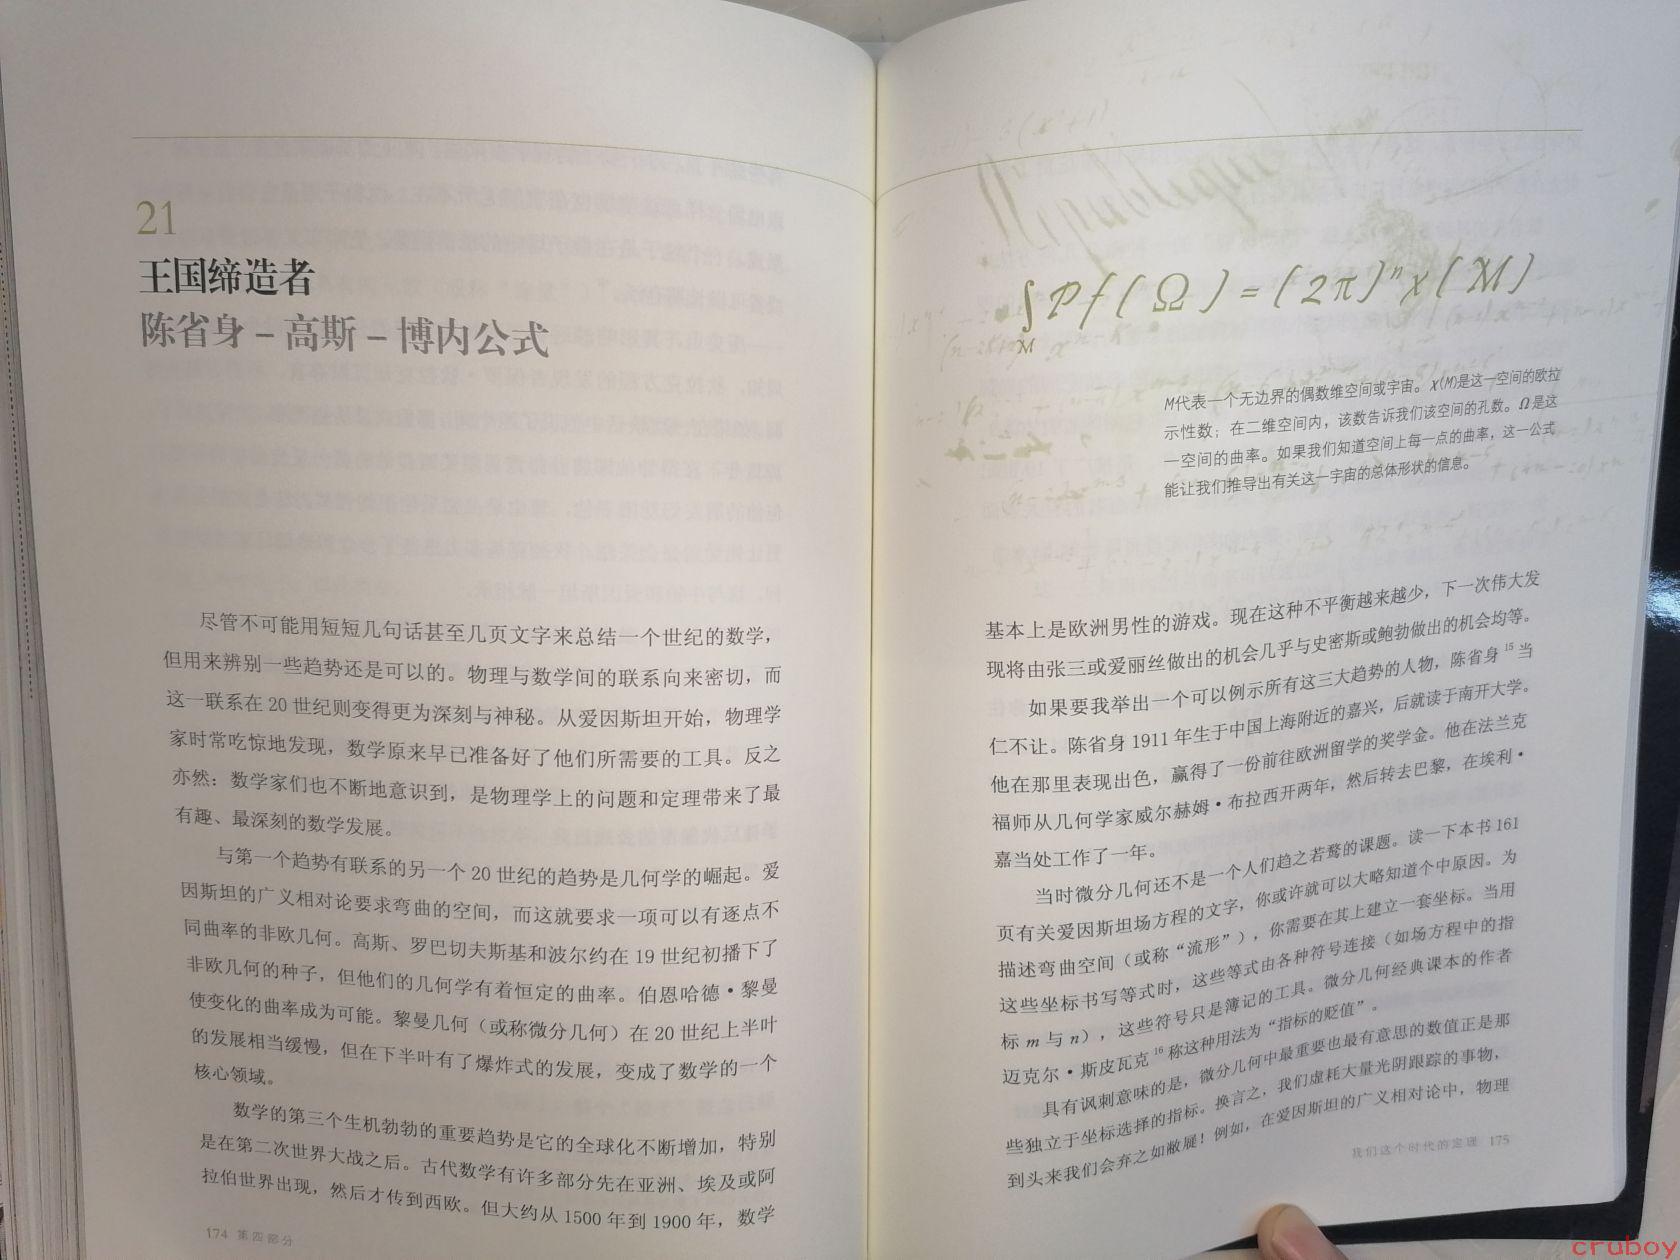 21
王国缔造者
陈省身－高斯－博内公式
尽管不可能用短短几句话甚至几页文字来总结一个世纪的数学，
但用来辨别一些趋势还是可以的。物理与数学间的联系向来密切，而
这一联系在 20 世纪则变得更为深刻与神秘。从爱因斯坦开始，物理学
家时常吃惊地发现，数学原来早已准备好了他们所需要的工具。反之
亦然：数学家们也不断地意识到，是物理学上的问题和定理带来了最
有趣、最深刻的数学发展。
与第一个趋势有联系的另一个 20 世纪的趋势是几何学的崛起。爱
因斯坦的广义相对论要求弯曲的空间，而这就要求一项可以有逐点不
同曲率的非欧几何。高斯、罗巴切夫斯基和波尔约在 19 世纪初播下了
非欧几何的种子，但他们的几何学有着恒定的曲率。伯恩哈德·黎曼
使变化的曲率成为可能。黎曼几何（或称微分几何）在 20 世纪上半叶
的发展相当缓慢，但在下半叶有了爆炸式的发展，变成了数学的一个
核心领域。
数学的第三个生机勃勃的重要趋势是它的全球化不断增加，特别
是在第二次世界大战之后。古代数学有许多部分先在亚洲、埃及或阿
拉伯世界出现，然后才传到西欧。但大约从 1500 年到 1900 年，数学
174 第四部分
∫M Pf(Ω)=(2π)ⁿχ(M)
M代表一个无边界的偶数维空间或宇宙。χ(M)是这一空间的欧拉
示性数；在二维空间内，该数告诉我们该空间的孔数。Ω是这
一空间的曲率。如果我们知道空间上每一点的曲率，这一公式
能让我们推导出有关这一宇宙的总体形状的信息。
基本上是欧洲男性的游戏。现在这种不平衡越来越少，下一次伟大发
现将由张三或爱丽丝做出的机会几乎与史密斯或鲍勃做出的机会均等。
如果要我举出一个可以例示所有这三大趋势的人物，陈省身15当
仁不让。陈省身 1911 年生于中国上海附近的嘉兴，后就读于南开大学。
他在那里表现出色，赢得了一份前往欧洲留学的奖学金。他在法兰克
福师从几何学家威尔赫姆·布拉西开两年，然后转去巴黎，在埃利·
嘉当处工作了一年。
当时微分几何还不是一个人们趋之若鹜的课题。读一下本书 161
页有关爱因斯坦场方程的文字，你或许就可以大略知道个中原因。为
描述弯曲空间（或称“流形”），你需要在其上建立一套坐标。当用
这些坐标书写等式时，这些等式由各种符号连接（如场方程中的指
标 m 与 n），这些符号只是簿记的工具。微分几何经典课本的作者
迈克尔·斯皮瓦克16称这种用法为“指标的贬值”。
具有讽刺意味的是，微分几何中最重要也最有意思的数值正是那
些独立于坐标选择的指标。换言之，我们虚耗大量光阴跟踪的事物，
到头来我们会弃之如敝屣！例如，在爱因斯坦的广义相对论中，物理
我们这个时代的定理 175
cruboy